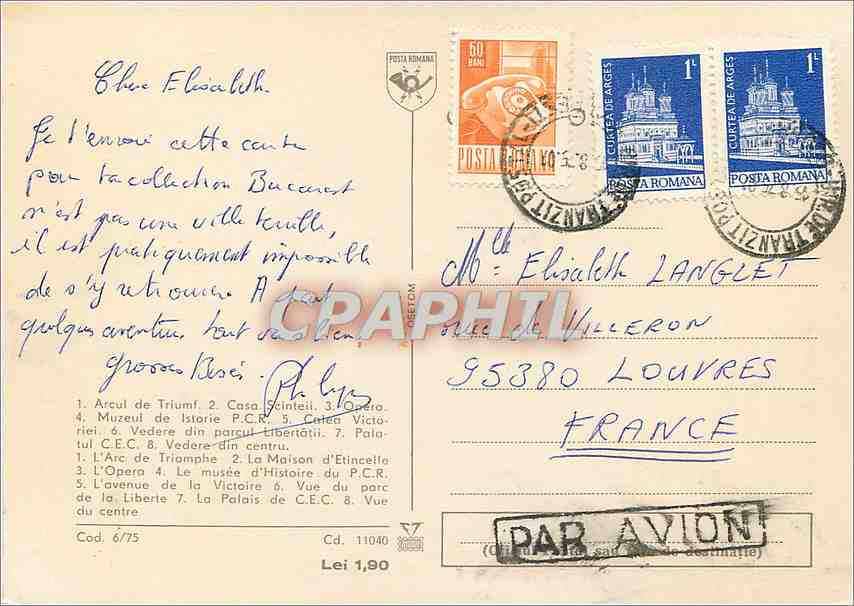 POSTA ROMANA
Chère Elisabeth.
Je t'envoie cette carte
pour ta collection Bucarest
n'est pas une ville terrible,
il est pratiquement impossible
de s'y retrouver. A part
quelques aventures tout va bien.
Grosses Bises.
Philippe
1. Arcul de Triumf. 2. Casa Scînteii. 3. Opera.
4. Muzeul de Istorie P.C.R. 5. Calea Victo-
riei. 6. Vedere din parcul Libertății. 7. Pala-
tul C.E.C. 8. Vedere din centru.
1. L'Arc de Triomphe 2. La Maison d'Etincelle
3. L'Opera 4. Le musée d'Histoire du P.C.R.
5. L'avenue de la Victoire 6. Vue du parc
de la Liberte 7. La Palais de C.E.C. 8. Vue
du centre
Cod. 6/75 Cd. 11040
Lei 1,90
OSETOM
CPAPHIL
60 BANI
POSTA
1L
CURTEA DE ARGES
POSTA ROMANA
1L
CURTEA DE ARGES
POSTA ROMANA
DE TRANZIT
DE TRANZIT
Mlle Elisabeth LANGLET
rue de VILLERON
95380 LOUVRES
FRANCE
PAR AVION
sau de destinație)